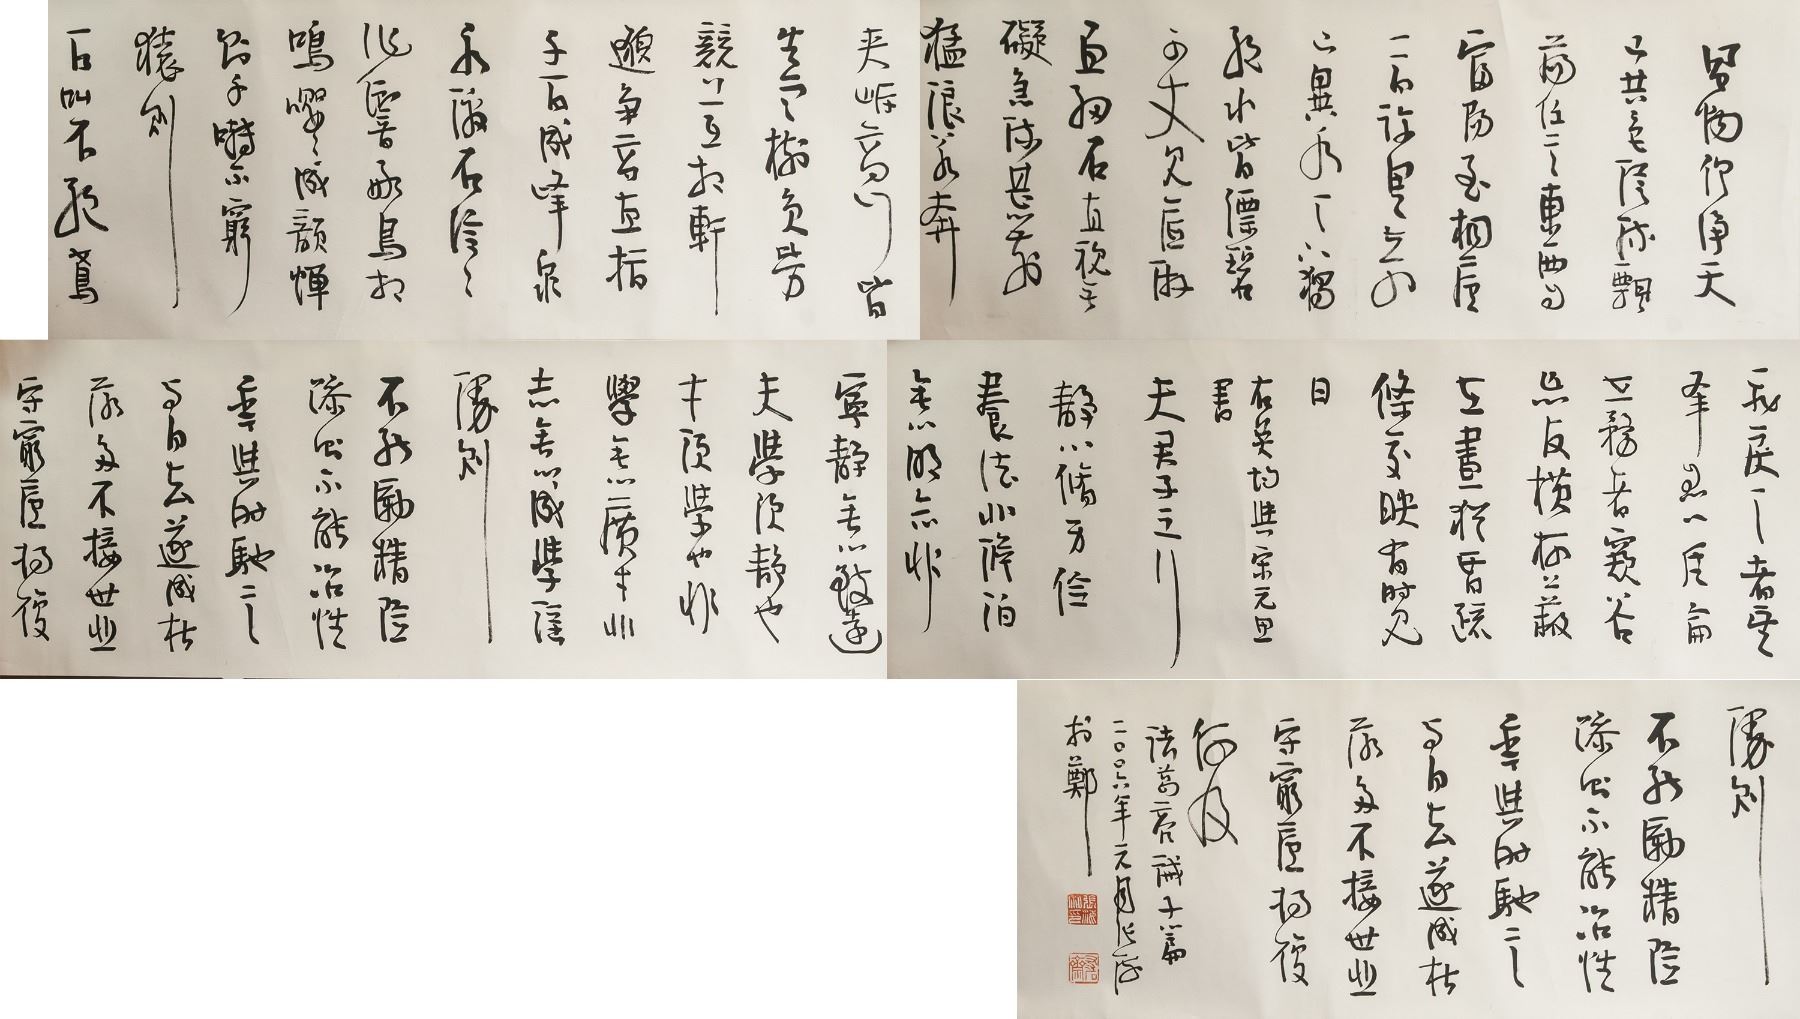 風煙俱淨天
山共色從流飄
蕩任意東西自
富陽至桐廬
一百許里奇
山異水天下獨
絕水皆縹碧
千丈見底游
魚細石直視無
礙急湍甚箭
猛浪若奔
夾岸高山皆
生寒樹負勢
競上互相軒
邈爭高直指
千百成峰泉
水激石泠泠
作響好鳥相
鳴嚶嚶成韻蟬
則千囀不窮
猿則
百叫不絕鳶
飛戾天者望
峰息心經綸
世務者窺谷
忘反橫柯上蔽
在晝猶昏疏
條交映有時見
日
右吳均與宋元思
書
夫君子之行
靜以脩身儉
養德非澹泊
無以明志非
寧靜無以致遠
夫學須靜也
才須學也非
學無以廣才非
志無以成學慆
慢則
不能勵精險
躁則不能冶性
年與時馳意
與日去遂成枯
落多不接世悲
守窮廬將復
慢則
不能勵精險
躁則不能冶性
年與時馳意
與日去遂成枯
落多不接世悲
守窮廬將復
何及
諸葛亮誡子篇
二〇〇六年元月張海
於鄭